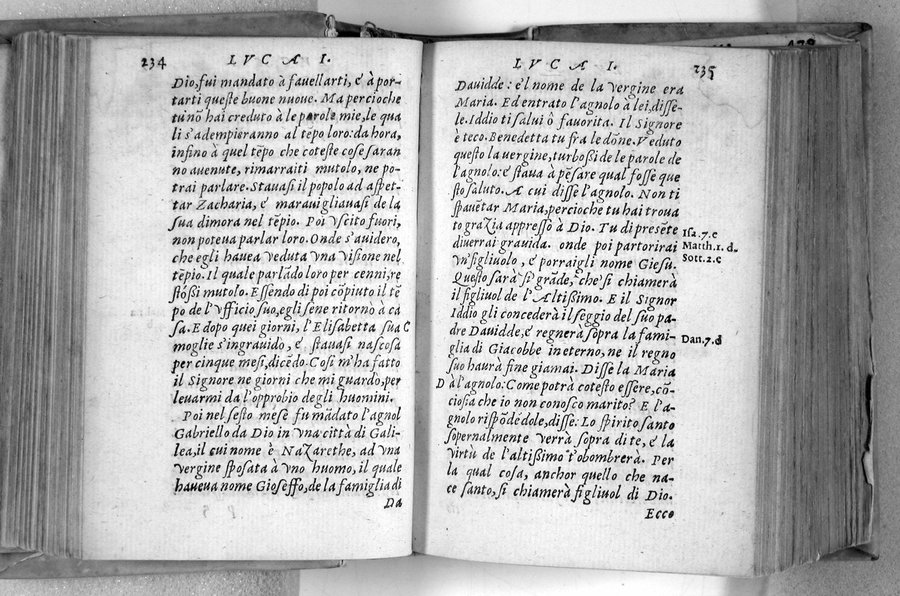 234
LVCA I.
Dio, fui mandato à fauellarti, e à por-
tarti queste buone nuoue. Ma percioche
tu nõ hai creduto à le parole mie, le qua
li s'adempieranno al tẽpo loro: da hora,
infino à quel tẽpo che coteste cose saran
no auenute, rimarraiti mutolo, ne po-
trai parlare. Stauasi il popolo ad aspet-
tar Zacharia, e marauigliauasi de la
sua dimora nel tẽpio. Poi vscito fuori,
non poteua parlar loro. Onde s'auidero,
che egli haueа veduta vna visione nel
tẽpio. Il quale parlãdo loro per cenni, re
stòssi mutolo. Essendo di poi cõpiuto il tẽ
po de l'vfficio suo, egli sene ritornò à ca
sa. E dopo quei giorni, l'Elisabetta sua
C
moglie s'ingrauidò, e stauasi nascosa
per cinque mesi, dicẽdo. Cosi m'ha fatto
il Signore ne giorni che mi guardò, per
leuarmi da l'opprobio degli huomini.
Poi nel sesto mese fu mãdato l'agnol
Gabriello da Dio in vna città di Gali-
lea, il cui nome è NaZarethe, ad vna
vergine sposata à vno huomo, il quale
haueua nome Gioseffo, de la famiglia di
Da
LVCA I.
235
Dauidde: e'l nome de la vergine era
Maria. Ed entrato l'agnolo à lei, disse-
le. Iddio ti salui ô fauorita. Il Signore
è teco. Benedetta tu fra le dõne. Veduto
questo la uergine, turbossi de le parole de
l'agnolo: e staua à pẽsare qual fosse que
sto saluto. A cui disse l'agnolo. Non ti
spauẽtar Maria, percioche tu hai troua
to graZia appresso à Dio. Tu di presẽte
Isa.7.c
diuerrai grauida. onde poi partorirai
Matth.1.d.
vn figliuolo, e porraigli nome Giesu.
Sott.2.c
Questo sarà si grãde, che si chiamerà
il figliuol de l'Altissimo. E il Signor
Iddio gli concederà il seggio del suo pa-
dre Dauidde, e regnerà sopra la fami-
Dan.7.d
glia di Giacobbe in eterno, ne il regno
suo haurà fine giamai. Disse la Maria
D
à l'agnolo: Come potrà cotesto essere, cõ-
ciosia che io non conosco marito? E l'a-
gnolo rispõdẽdole, disse: Lo spirito santo
sopernalmente verrà sopra di te, e la
virtù de l'altissimo t'obombrerà. Per
la qual cosa, anchor quello che na-
ce santo, si chiamerà figliuol di Dio.
Ecco